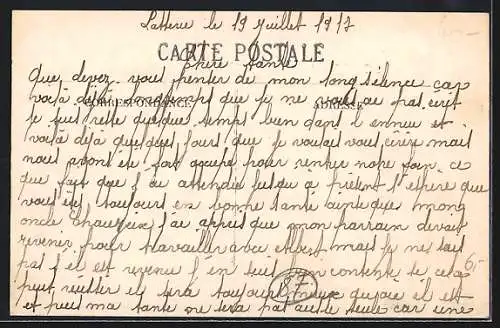 le 19 Juillet 1917
CARTE POSTALE
Chère Tante
Que devez-vous penser de mon long silence car
voilà déjà longtemps que je ne vous ai pas écrit
CORRESPONDANCE ADRESSE
je suis resté quelque temps bien dans l ennui et
voilà déjà quelques jours que je voulais vous écrire mais
nous avons été fort occupé pour rentrer notre foin ce
que fait que j ai attendu jusqu à présent J espère que
vous êtes toujours en bonne santé ainsi que mong
oncle j ai appris que mon parrain devait
revenir pour travailler avec mais je ne sais
pas s il est revenu j en suis bien contente si cela
peut réussir il sera toujours mieux qu où il est
et puis ma tante ne sera pas seule car une
87
6,-